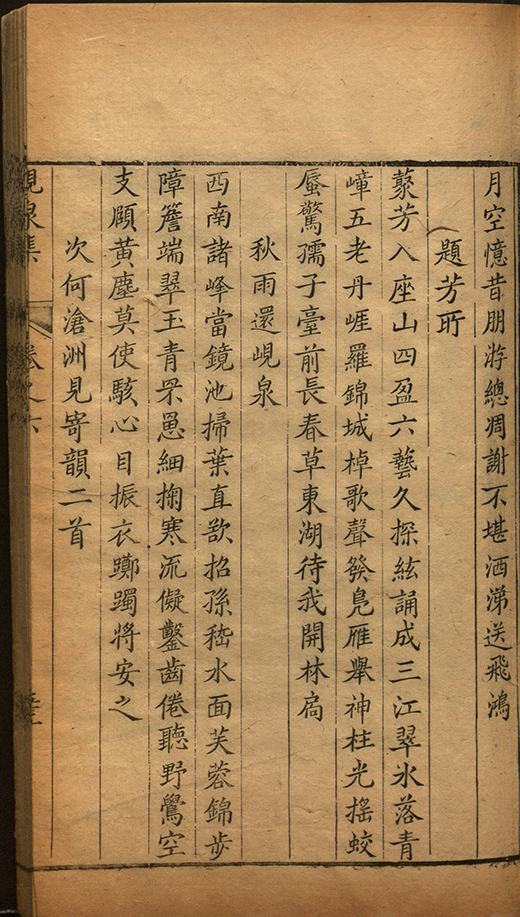 月空憶昔朋游總凋謝不堪洒涕送飛鴻
題芳所
蔾芳入座山四盈六藝久探絃誦成三江翠氷落青
嶂五老丹崕羅錦城棹歌聲發鳬雁舉神柱光搖蛟
蜃驚孺子臺前長春草東湖待我開林扃
秋雨還峴泉
西南諸峰當鏡池掃葉直欲招孫嵇水面芙蓉錦步
障簷端翠玉青罘罳細掬寒流儗鑿齒倦聽野鶯空
支頥黄塵莫使駭心目振衣躑躅將安之
次何滄洲見寄韻二首
峴泉集
卷之六